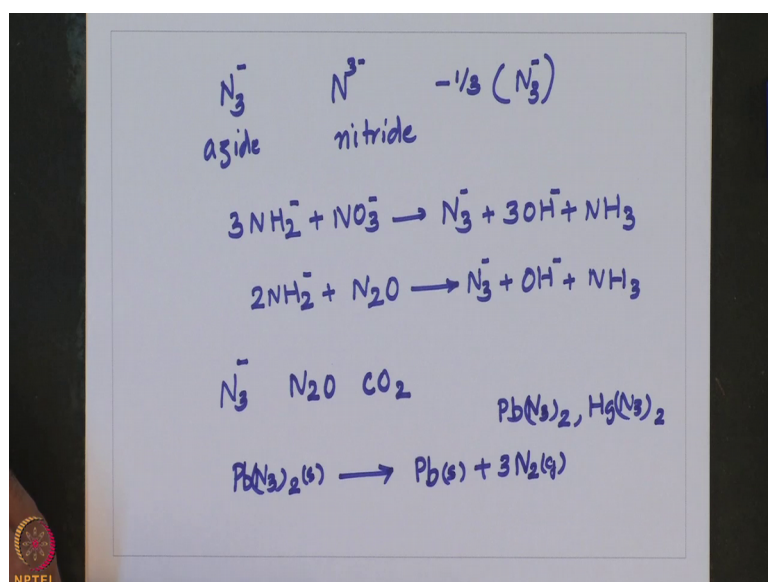 N₃⁻ N³⁻ -1/3 (N₃⁻)
azide nitride
3NH₂⁻ + NO₃⁻ → N₃⁻ + 3OH⁻ + NH₃
2NH₂⁻ + N₂O → N₃⁻ + OH⁻ + NH₃
N₃⁻ N₂O CO₂
Pb(N₃)₂, Hg(N₃)₂
Pb(N₃)₂(s) → Pb(s) + 3N₂(g)
NPTEL